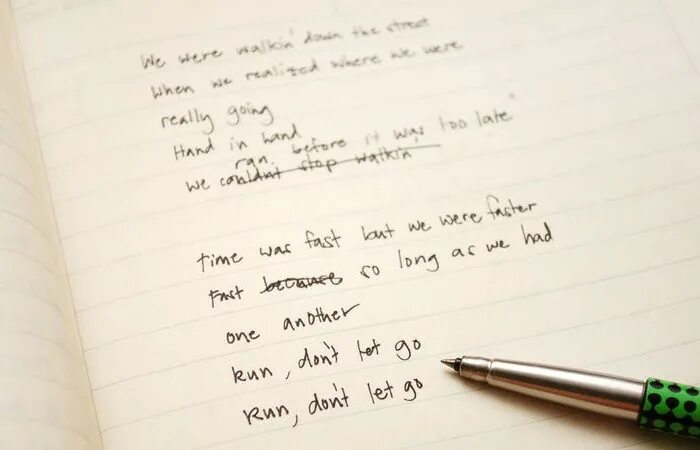 We were walkin' down the street
When we realized where we were
really going
Hand in hand
ran before it was too late
We couldnt stop walkin
time was fast but we were faster
Fast because so long as we had
one another
Run, don't let go
Run, don't let go